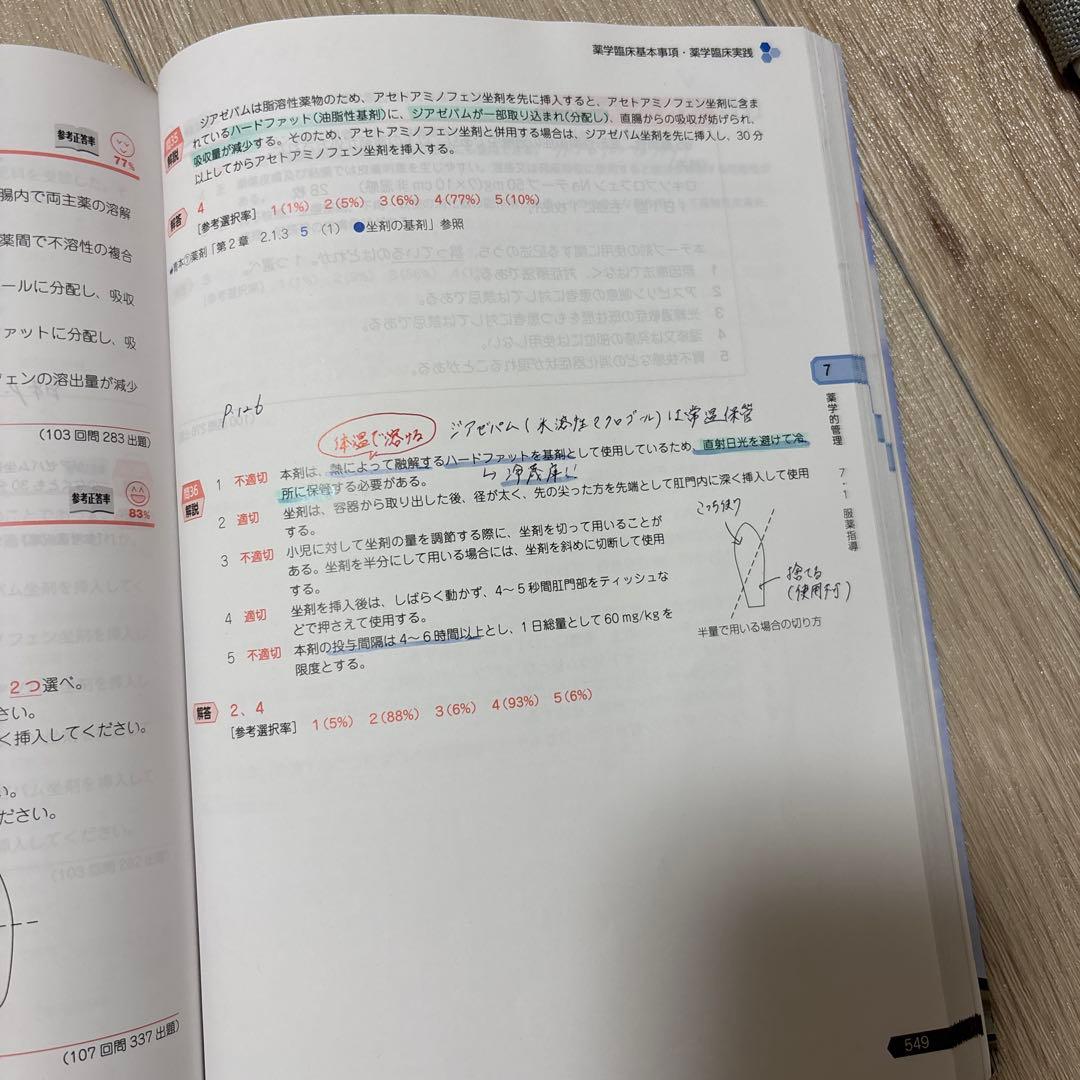 参考正答率
77%
腸内で両主薬の溶解
薬間で不溶性の複合
ールに分配し、吸収
ァットに分配し、吸
フェンの溶出量が減少
(103回問283出題)
参考正答率
83%
2つ選べ。
さい。
く挿入してください。
い。
ださい。
(107回問337出題)
薬学臨床基本事項・薬学臨床実践
問35
解説
ジアゼパムは脂溶性薬物のため、アセトアミノフェン坐剤を先に挿入すると、アセトアミノフェン坐剤に含ま
れているハードファット(油脂性基剤)に、ジアゼパムが一部取り込まれ(分配し)、直腸からの吸収が妨げられ、
吸収量が減少する。そのため、アセトアミノフェン坐剤と併用する場合は、ジアゼパム坐剤を先に挿入し、30分
以上してからアセトアミノフェン坐剤を挿入する。
解答
4
[参考選択率] 1(1%) 2(5%) 3(6%) 4(77%) 5(10%)
青本⑦薬剤「第2章 2.1.3 5 (1) ●坐剤の基剤」参照
P.126
体温で溶ける
ジアゼパム(水溶性マクロゴール)は常温保管
問36
解説
1 不適切 本剤は、熱によって融解するハードファットを基剤として使用しているため、直射日光を避けて冷
所に保管する必要がある。
↳冷蔵庫に
2 適切 坐剤は、容器から取り出した後、径が太く、先の尖った方を先端として肛門内に深く挿入して使用
する。
3 不適切 小児に対して坐剤の量を調節する際に、坐剤を切って用いることが
ある。坐剤を半分にして用いる場合には、坐剤を斜めに切断して使用
する。
4 適切 坐剤を挿入後は、しばらく動かず、4〜5秒間肛門部をティッシュな
どで押さえて使用する。
5 不適切 本剤の投与間隔は4〜6時間以上とし、1日総量として60 mg/kgを
限度とする。
こっち使う
捨てる
(使用不可)
半量で用いる場合の切り方
解答
2、4
[参考選択率] 1(5%) 2(88%) 3(6%) 4(93%) 5(6%)
7
薬学的管理
7・1 服薬指導
549